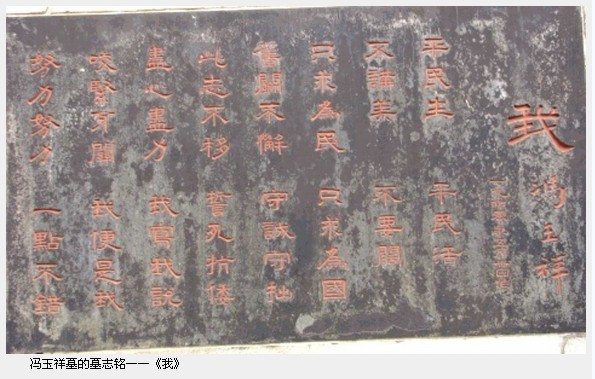 我
馮玉祥
平民生 平民活
不講美 不要闊
只求為民 只求為國
奮鬭不懈 守誠守拙
此志不移 誓死抗倭
盡心盡力 我寫我說
咬緊牙關 我便是我
努力努力 一點不錯
冯玉祥墓的墓志铭——《我》